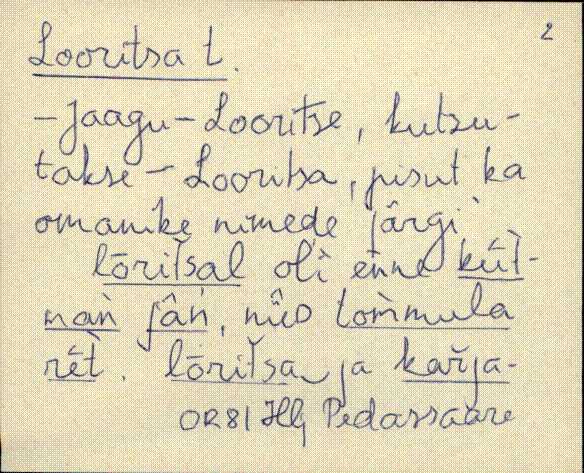 2
Looritsa t.
- Jaagu - Looritse, kutsu-
takse - Looritsa, pisut ka
omanike nimede järgi
lōritšal oli enne kǖt-
man jân, nüɒ tommula
rēt. lōritša ja karja-
OR81 Hlj Pedassaare